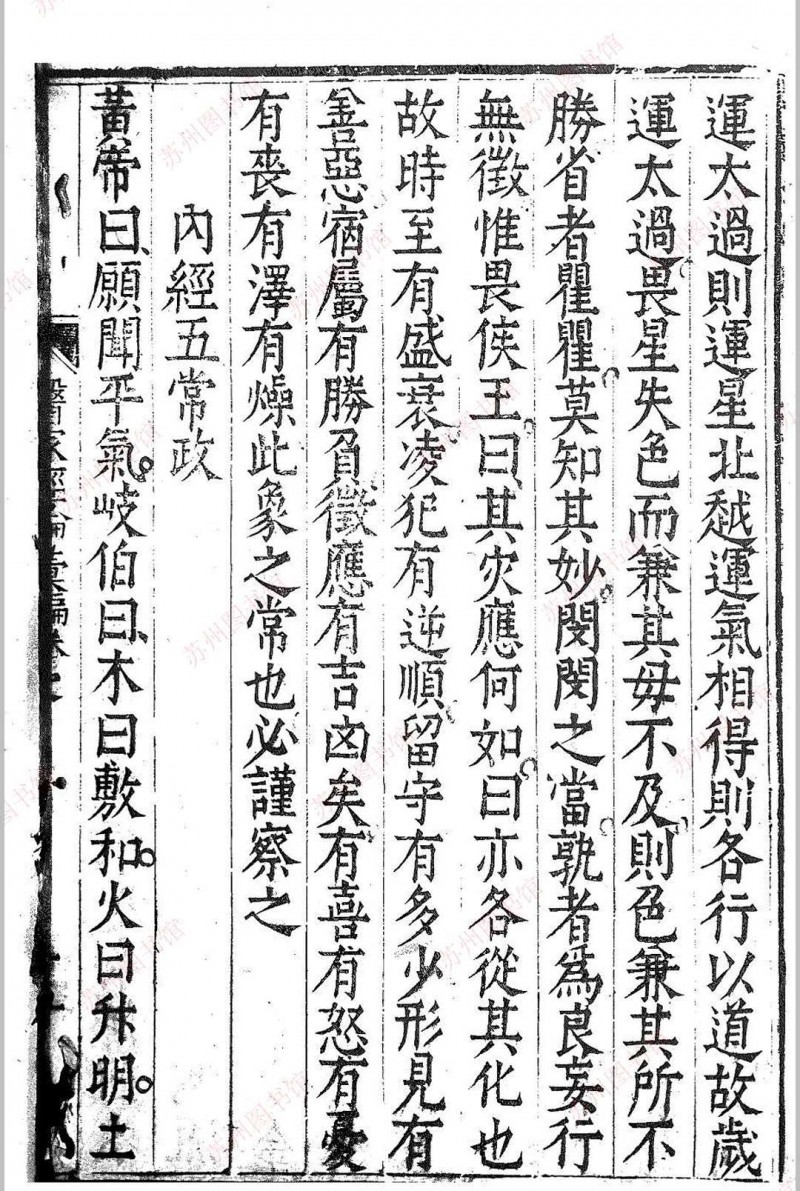 運太過則運星北越運氣相得則各行以道故歲
運太過畏星失色而兼其毋不及則色兼其所不
勝省者瞿瞿莫知其妙閔閔之當孰者為良妄行
無徵惟畏侯王曰其灾應何如曰亦各從其化也
故時至有盛衰凌犯有逆順留守有多少形見有
善惡宿屬有勝負徵應有吉凶矣有喜有怒有憂
有喪有澤有燥此象之常也必謹察之
內經五常政
黃帝曰、願聞平氣。岐伯曰、木曰敷和。火曰升明。土
醫家經論彙編卷之
苏州图书馆